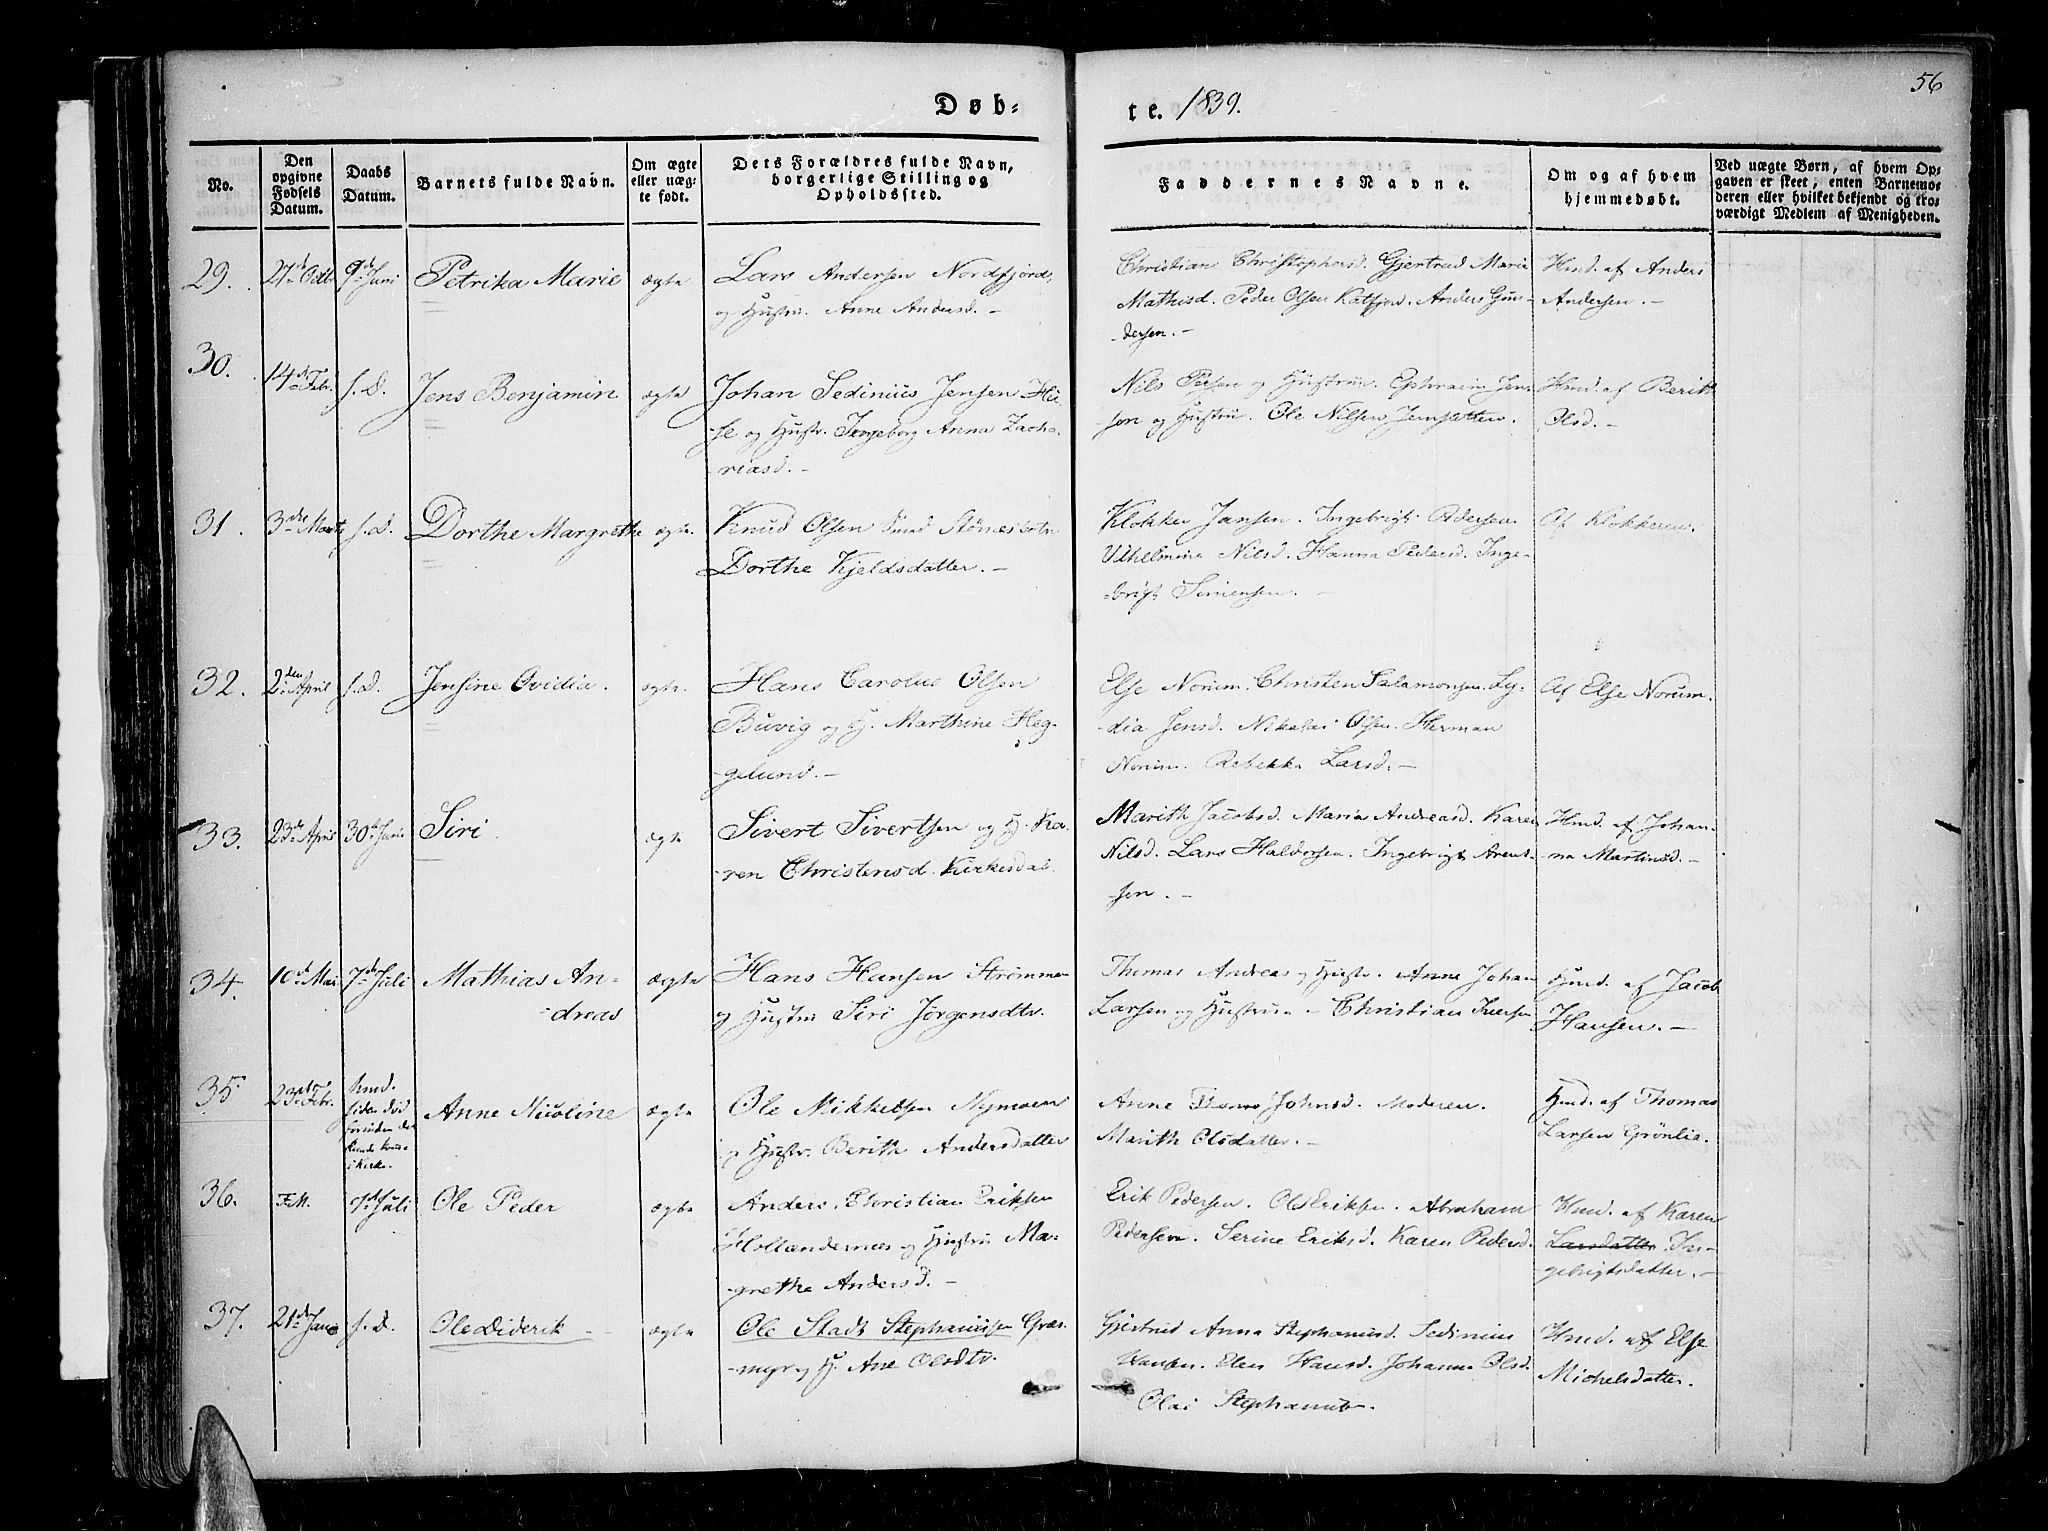 56
Døb-
te. 1839.
No.
Den opgivne Fødsels Datum.
Daabs Datum.
Barnets fulde Navn.
Om ægte eller uægte født.
Dets Forældres fulde Navn, borgerlige Stilling og Opholdssted.
Faddernes Navne.
Om og af hvem hjemmedøbt.
Ved uægte Børn, af hvem Opgaven er skeet, enten Barnemoderen eller hvilket bekjendt og troværdigt Medlem af Menigheden.
29.
27d Octbr
9d Juni
Petrika Marie
ægte
Lars Andersen Nordfjord,
og Hustru Anne Andersd. -
Christian Christophersd. Gjertrud Maria
Mathisd. Peder Olsen Katfjord. Anders Gun-
dersen. -
Hmd. af Anders
Andersen. -
30.
14d Febr.
s. D.
Jens Benjamin
ægte
Johan Sedinius Jensen Hu-
se og Hustr. Ingeborg Anna Zacha-
riasd. -
Nils og Hustru. Ephraim Jen-
sen og Hustru. Ole Nilsen
Hmd. af Berith
Olsd. -
31.
3die Marts
s. D.
Dorthe Margrethe
ægte.
Knud Olsen
Dorthe Kjeldsdatter. -
Klokker Jansen. Ingebrigt Pedersen.
Vilhelmine Nilsd. Hanna Pedersd. Inge-
brigt Simensen. -
Af Klokkeren.
32.
2den April
s. D.
Jensine Ovidia.
ægte.
Hans Carolus Olsen
Buvig og H. Marthine Heg-
gelund. -
Else Norum. Christen Salamonsen. Ly-
dia Jensd. Nikolai Olsen. Herman
Norum. Rebekka Larsd. -
Af Else Norum.
33.
23d April
30d Juni
Siri
ægte
Sivert Sivertsen og H. Ka-
ren Christensd. Kirkesdal.
Marith Jacobsd. Maria Andreasd. Karen
Nilsd. Lars Haldorsen. Ingebrigt Arent-
sen. -
Hmd. af Johan-
na Martinsd. -
34.
10d Mai
7d Juli
Mathias An-
dreas
ægte
Hans Hansen Strømmen
og Hustru Siri Jörgensdtr.
Thomas Andreas og Hustr. Anne Johan
Larsen og Hustrue - Christian Iversen
Hmd. af Jacob
Hansen. -
35
23d Febr.
hmd.
siden død
i Kirke.
Anne Nicoline
ægte
Ole Mikkelsen Nymoen
og Hustr. Berith Andersdatter
Anne Johnsd. Moderen.
Marith Olsdatter. -
Hmd. af Thomas
Larsen Grönlie.
36.
7d Juli
Ole Peder
ægte
Anders Christian Eriksen
Hollendernæs og Hustru Ma-
grethe Andersd. -
Erik Pedersen. Ole Eriksen. Abraham
Pedersen. Serine Eriksd. Karen Pedersd.
Hmd. af Karen
Larsdatter In-
gebrigtsdatter. -
37.
21d
s. D.
Ole Diderik
ægte
Ole Stadt Stephanusen Græs-
myr og H. Ane Olsdtr.
Gjertrud Anna Stephanusd. Sedinius
Hansen. Elen Hansd. Johanna Olsd.
Olai
Hmd. af Else
Michelsdatter.